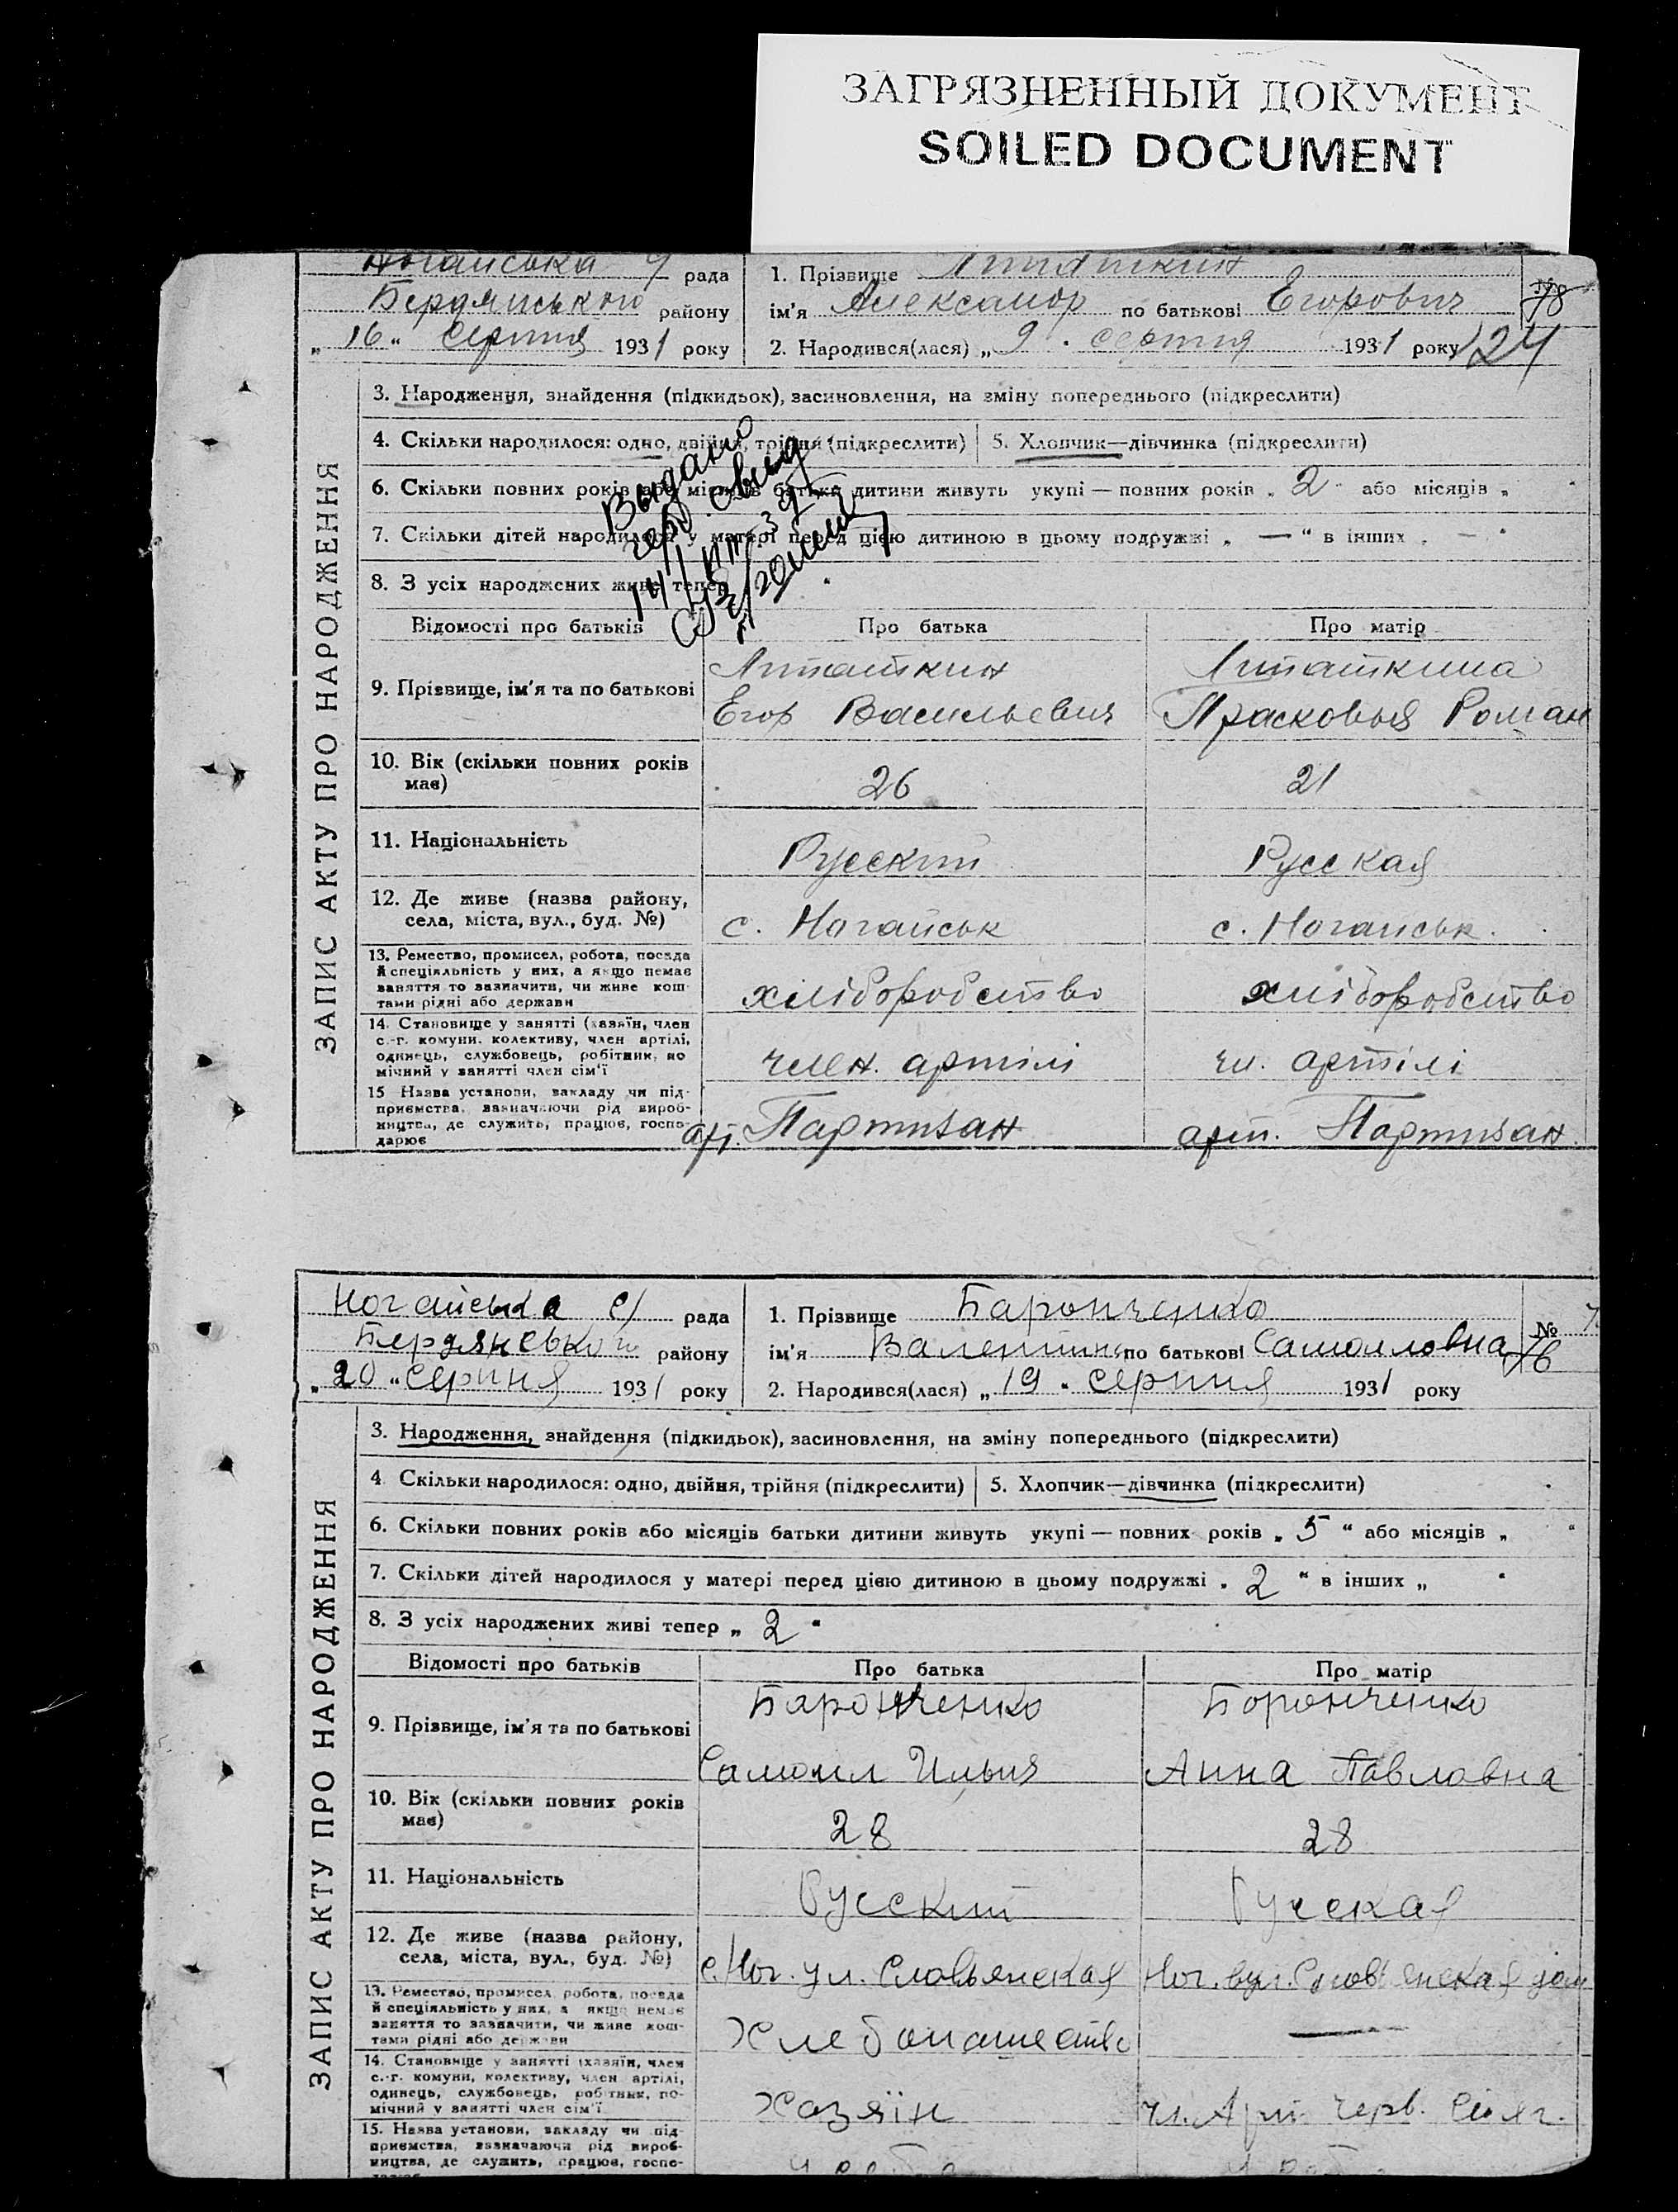 ЗАГРЯЗНЕННЫЙ ДОКУМЕНТ
SOILED DOCUMENT
Ногайська рада
Бердянського району
„16“ серпня 1931 року
1. Прізвище
ім'я Александр по батькові Егорович
2. Народився(лася) „9“ серпня 1931 року
№
78
124
ЗАПИС АКТУ ПРО НАРОДЖЕННЯ
3. Народження, знайдення (підкидьок), засиновлення, на зміну попереднього (підкреслити)
4. Скільки народилося: одно, двійня, трійня (підкреслити)
5. Хлопчик—дівчинка (підкреслити)
6. Скільки повних років або місяців батьки дитини живуть укупі — повних років „2“ або місяців „ “
7. Скільки дітей народилося у матері перед цією дитиною в цьому подружжі „—“ в інших „—“
8. З усіх народжених живі тепер
Выдано
свид
Відомості про батьків
Про батька
Про матір
9. Прізвище, ім'я та по батькові
Липаткин
Егор Васильевич
Липаткина
Прасковья Роман
10. Вік (скільки повних років має)
26
21
11. Національність
Русский
Русская
12. Де живе (назва району, села, міста, вул., буд. №)
с. Ногайськ
с. Ногайськ.
13. Ремество, промисел, робота, посада й спеціяльність у них, а якщо немає заняття то зазначити, чи живе коштами рідні або держави
хліборобство
хліборобство
14. Становище у занятті (хазяїн, член с.-г. комуни, колективу, член артілі, одинець, службовець, робітник, помічний у занятті член сім'ї
член. артілі
чл. артілі
15 Назва установи, закладу чи підприємства, зазначаючи рід виробництва, де служить, працює, господарює
арт. Партизан
арт. Партизан
Ногайська с/ рада
Бердянського району
„20“ серпня 1931 року
1. Прізвище Баронченко
ім'я Валентина по батькові Самоиловна
2. Народився(лася) „19“ серпня 1931 року
№
76
ЗАПИС АКТУ ПРО НАРОДЖЕННЯ
3. Народження, знайдення (підкидьок), засиновлення, на зміну попереднього (підкреслити)
4 Скільки народилося: одно, двійня, трійня (підкреслити)
5. Хлопчик—дівчинка (підкреслити)
6. Скільки повних років або місяців батьки дитини живуть укупі — повних років „5“ або місяців „ “
7. Скільки дітей народилося у матері перед цією дитиною в цьому подружжі „2“ в інших „ “
8. З усіх народжених живі тепер „2“
Відомості про батьків
Про батька
Про матір
9. Прізвище, ім'я та по батькові
Баронченко
Самоил Ильич
Боронченко
Анна Павловна
10. Вік (скільки повних років має)
28
28
11. Національність
Русский
Русская
12. Де живе (назва району, села, міста, вул., буд. №)
с. Ног. ул. Славьянская
Ног. вул. Славьянская дом
13. Ремество, промисел, робота, посада й спеціяльність у них, а якщо немає заняття то зазначити, чи живе коштами рідні або держави
Хлебопашество
—
14. Становище у занятті (хазяїн, член с.-г. комуни, колективу, член артілі, одинець, службовець, робітник, помічний у занятті член сім'ї
Хазяїн
чл. Арт. Черв. Стяг.
15. Назва установи, закладу чи підприємства, зазначаючи рід виробництва, де служить, працює, госпо-